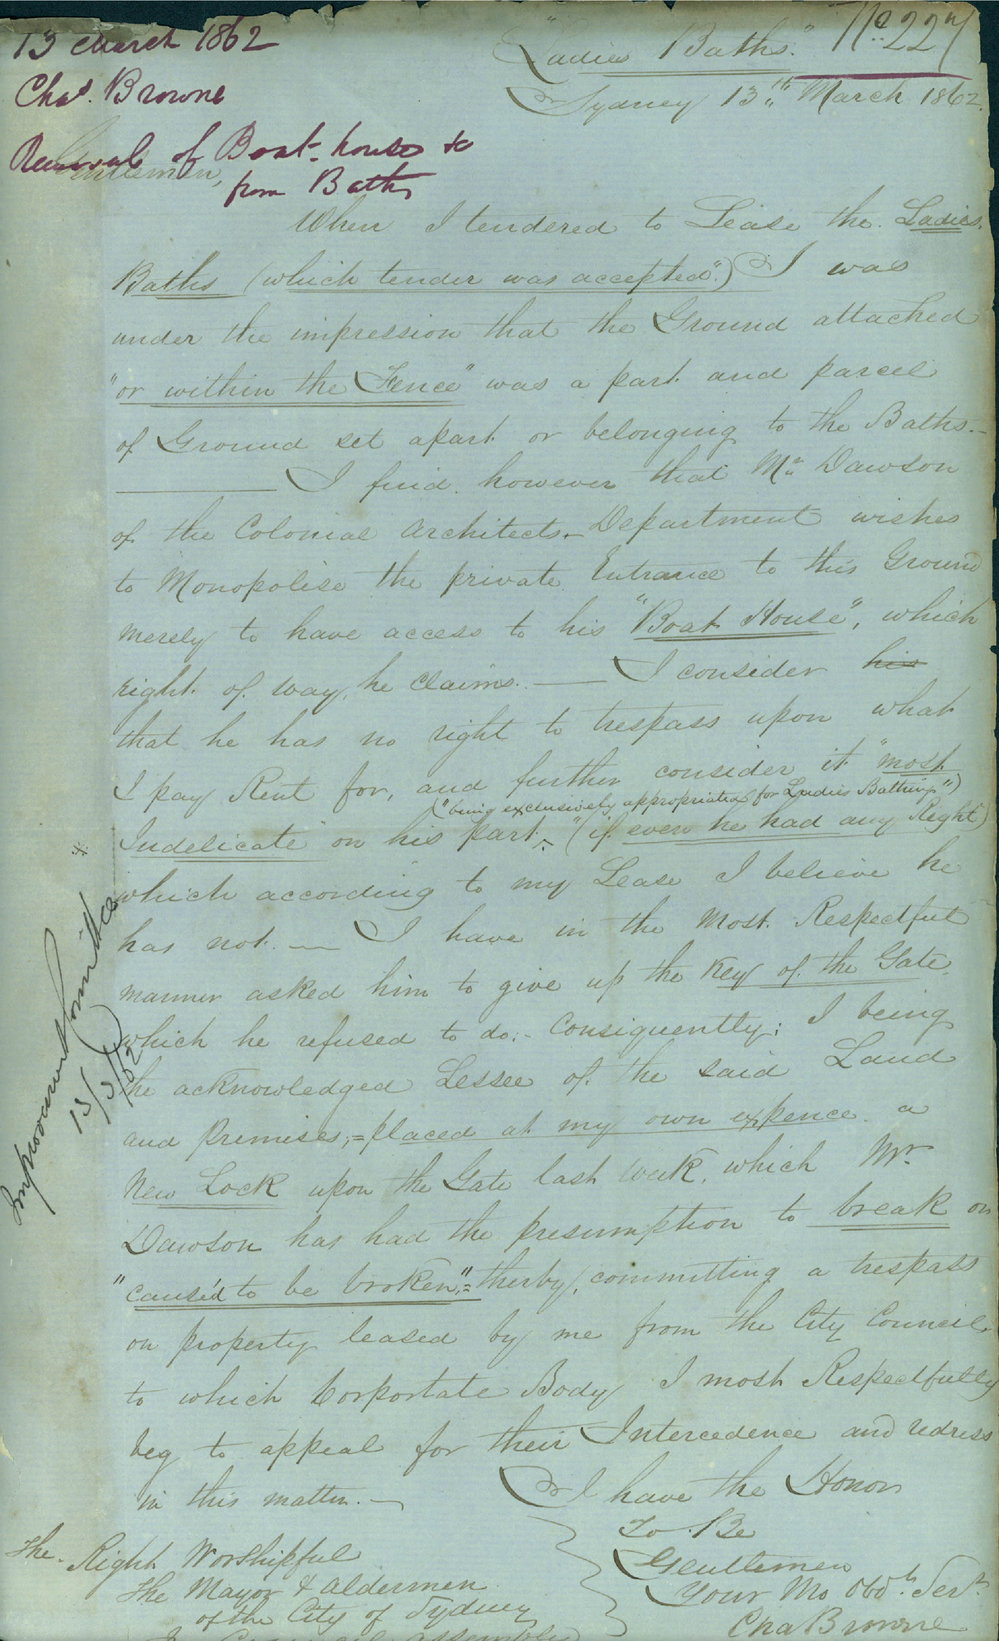 "Ladies Baths." No 227
13 March 1862
Sydney 13th March 1862.
Chas. Browne
Removal of Boat-house &c
from Baths
Gentlemen,
When I tendered to Lease the Ladies
Baths (which tender was accepted") I was
under the impression that the Ground attached
"or within the Fence" was a part and parcel
of Ground set apart or belonging to the Baths.—
I find however that Mr Dawson
of the Colonial Architects Department wishes
to Monopolise the private Entrance to this Ground
merely to have access to his "Boat House", which
right of way, he claims. — I consider his
that he has no right to trespass upon what
I pay Rent for, and further consider it "most
("being exclusively appropriated for Ladies Bathing")
Indelicate" on his part, "(if even he had any Right)
which according to my Lease I believe he
has not. — I have in the Most Respectful
manner asked him to give up the Key of the Gate,
which he refused to do:- Consiquently; I being
the acknowledged Lessee of the said Land
and Premises,=placed at my own expence a
New Lock upon the Gate last week, which Mr.
Dawson has had the presumption to break or
"caused to be broken",= therby, committing a trespass
on property leased by me from the City Council
to which Corportate Body I most Respectfully
beg to appeal for their Intercedence and redress
in this matter. —
I have the Honor
To Be
Gentlemen
Your Mo Obdt. Servt
Cha Browne
The Right Worshipful
The Mayor & Aldermen
of the City of Sydney
In Council assembled
Improvement Committee
15/3/62